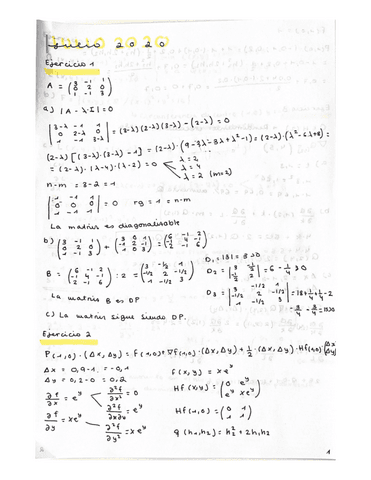 JULIO 2020
Ejercicio 1
A = (3 -1 1 / 0 2 0 / 1 -1 3)
a) |A - λ·I| = 0
|3-λ -1 1 / 0 2-λ 0 / 1 -1 3-λ| = (3-λ)(2-λ)(3-λ) - (2-λ) = 0
(2-λ)[(3-λ)·(3-λ) - 1] = (2-λ)·(9-3λ-3λ+λ²-1) = (2-λ)·(λ²-6λ+8) =
= (2-λ)·(λ-4)·(λ-2) = 0 λ = 2 λ = 4 λ = 2 (m=2)
n-m = 3-2 = 1
|1 -1 1 / 0 0 0 / 1 -1 1| = 0 rg = 1 = n-m
La matriz es diagonalizable
b) (3 -1 1 / 0 2 0 / 1 -1 3) + (3 0 1 / -1 2 -1 / 1 0 3) = (6 -1 2 / -1 4 -1 / 2 -1 6)
B = (6 -1 2 / -1 4 -1 / 2 -1 6) : 2 = (3 -1/2 1 / -1/2 2 -1/2 / 1 -1/2 3)
D₁ = |3| = 3 > 0
D₂ = |3 -1/2 / -1/2 2| = 6 - 1/4 > 0
D₃ = |3 -1/2 1 / -1/2 2 -1/2 / 1 -1/2 3| = 18 + 1/4 + 1/4 - 2
La matriz B es DP
c) La matriz sigue siendo DP.
Ejercicio 2
P(1,0)·(Δx, Δy) = f(1,0) + ∇f(1,0)·(Δx, Δy) + 1/2·(Δx, Δy)·Hf(1,0)(Δx / Δy)
Δx = 0,9-1 = -0,1
Δy = 0,2-0 = 0,2
f(x,y) = xe^y
∂f/∂x = e^y
∂²f/∂x² = 0
∂²f/∂x∂y = e^y
Hf(x,y) = (0 e^y / e^y xe^y)
∂f/∂y = xe^y
∂²f/∂y² = xe^y
Hf(1,0) = (0 1 / 1 1)
q(h₁,h₂) = h₂² + 2h₁h₂
1